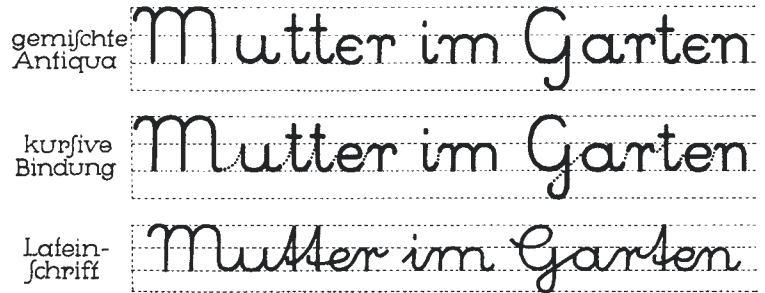 gemiſchte
Antiqua
Mutter im Garten
kurſive
Bindung
Mutter im Garten
Latein-
ſchrift
Mutter im Garten